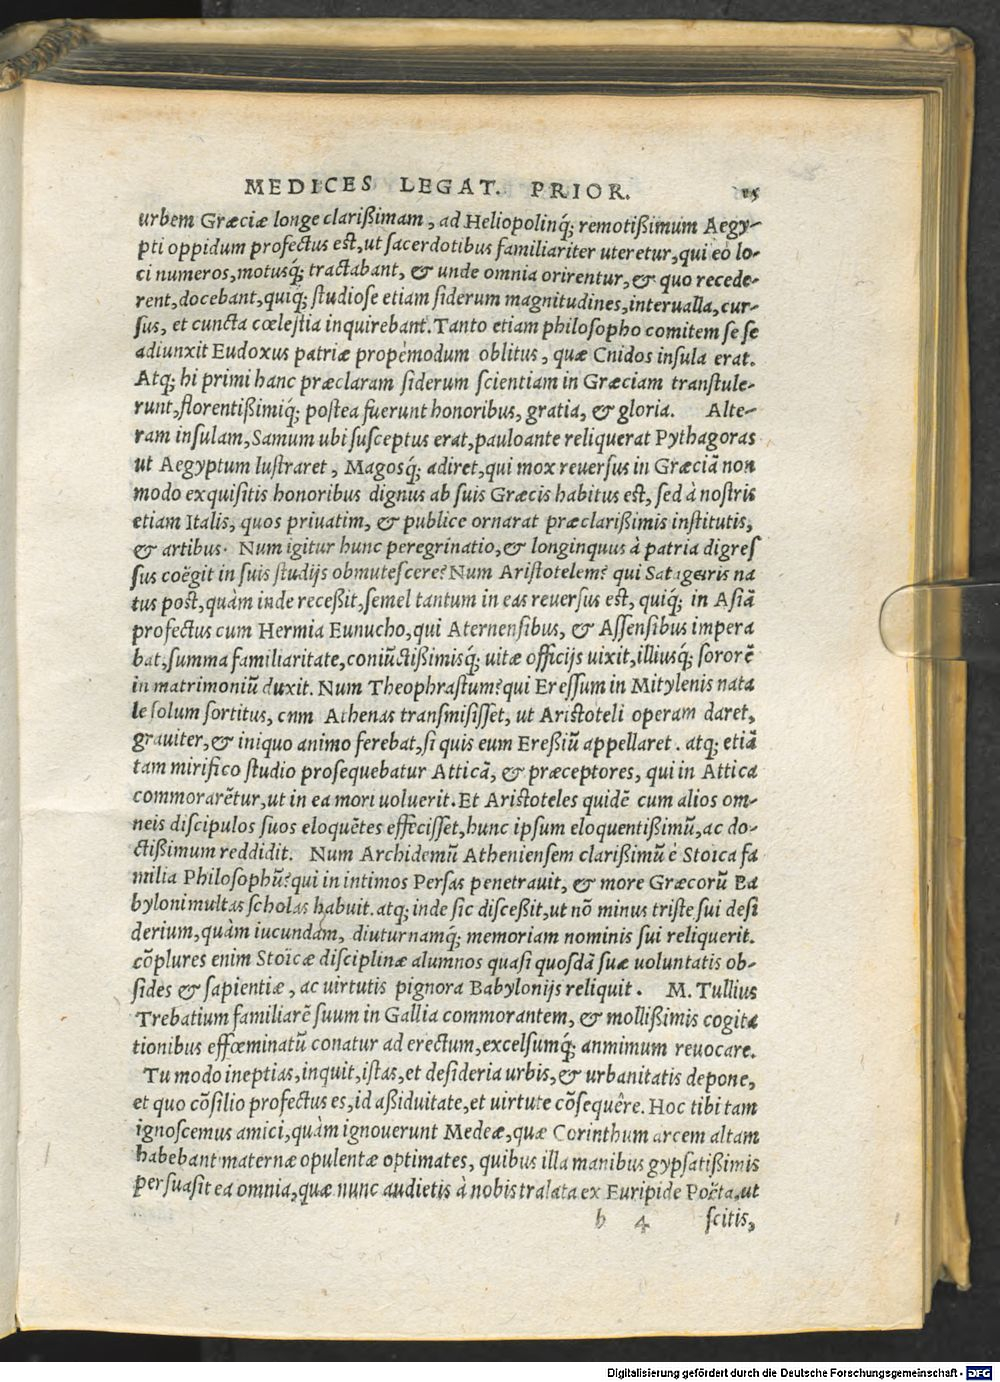 MEDICES LEGAT. PRIOR. 15
urbem Græciæ longe clarißimam, ad Heliopolinq́; remotißimum Aegy-
pti oppidum profectus est, ut sacerdotibus familiariter uteretur, qui eo lo-
ci numeros, motusq́; tractabant, & unde omnia orirentur, & quo recede-
rent, docebant, quiq́; studiose etiam siderum magnitudines, interualla, cur-
sus, et cuncta cœlestia inquirebant. Tanto etiam philosopho comitem se se
adiunxit Eudoxus patriæ propemodum oblitus, quæ Cnidos insula erat.
Atq; hi primi hanc præclaram siderum scientiam in Græciam transtule-
runt, florentißimiq́; postea fuerunt honoribus, gratia, & gloria. Alte-
ram insulam, Samum ubi susceptus erat, pauloante reliquerat Pythagoras
ut Aegyptum lustraret, Magosq́; adiret, qui mox reuersus in Græciā non
modo exquisitis honoribus dignus ab suis Græcis habitus est, sed à nostris
etiam Italis, quos priuatim, & publice ornarat præclarißimis institutis,
& artibus. Num igitur hunc peregrinatio, & longinquus à patria digres
sus coëgit in suis studijs obmutescere? Num Aristotelem? qui Satageiris na
tus post, quàm inde receßit, semel tantum in eas reuersus est, quiq́; in Asiā
profectus cum Hermia Eunucho, qui Aternensibus, & Assensibus impera
bat, summa familiaritate, coniūctißimisq́; uitæ officijs uixit, illiusq́; sororē
in matrimoniū duxit. Num Theophrastum? qui Eressum in Mitylenis nata
le solum sortitus, cnm Athenas transmisisset, ut Aristoteli operam daret,
grauiter, & iniquo animo ferebat, si quis eum Ereßiū appellaret. atq; etiā
tam mirifico studio prosequebatur Atticā, & præceptores, qui in Attica
commorarētur, ut in ea mori uoluerit. Et Aristoteles quidē cum alios om-
neis discipulos suos eloquētes effecisset, hunc ipsum eloquentißimū, ac do-
ctißimum reddidit. Num Archidemū Atheniensem clarißimū è Stoica fa
milia Philosophū? qui in intimos Persas penetrauit, & more Græcorū Ba
byloni multas scholas habuit. atq; inde sic disceßit, ut nō minus triste sui desi
derium, quàm iucundam, diuturnamq́; memoriam nominis sui reliquerit.
cōplures enim Stoicæ disciplinæ alumnos quasi quosdā suæ uoluntatis ob-
sides & sapientiæ, ac uirtutis pignora Babylonijs reliquit. M. Tullius
Trebatium familiarē suum in Gallia commorantem, & mollißimis cogita
tionibus effœminatū conatur ad erectum, excelsumq́; anmimum reuocare.
Tu modo ineptias, inquit, istas, et desideria urbis, & urbanitatis depone,
et quo cōsilio profectus es, id aßiduitate, et uirtute cōsequêre. Hoc tibi tam
ignoscemus amici, quàm ignouerunt Medeæ, quæ Corinthum arcem altam
habebant maternæ opulentæ optimates, quibus illa manibus gypsatißimis
persuasit ea omnia, quæ nunc audietis à nobis tralata ex Euripide Poëta, ut
b 4 scitis,
Digitalisierung gefördert durch die Deutsche Forschungsgemeinschaft - DFG